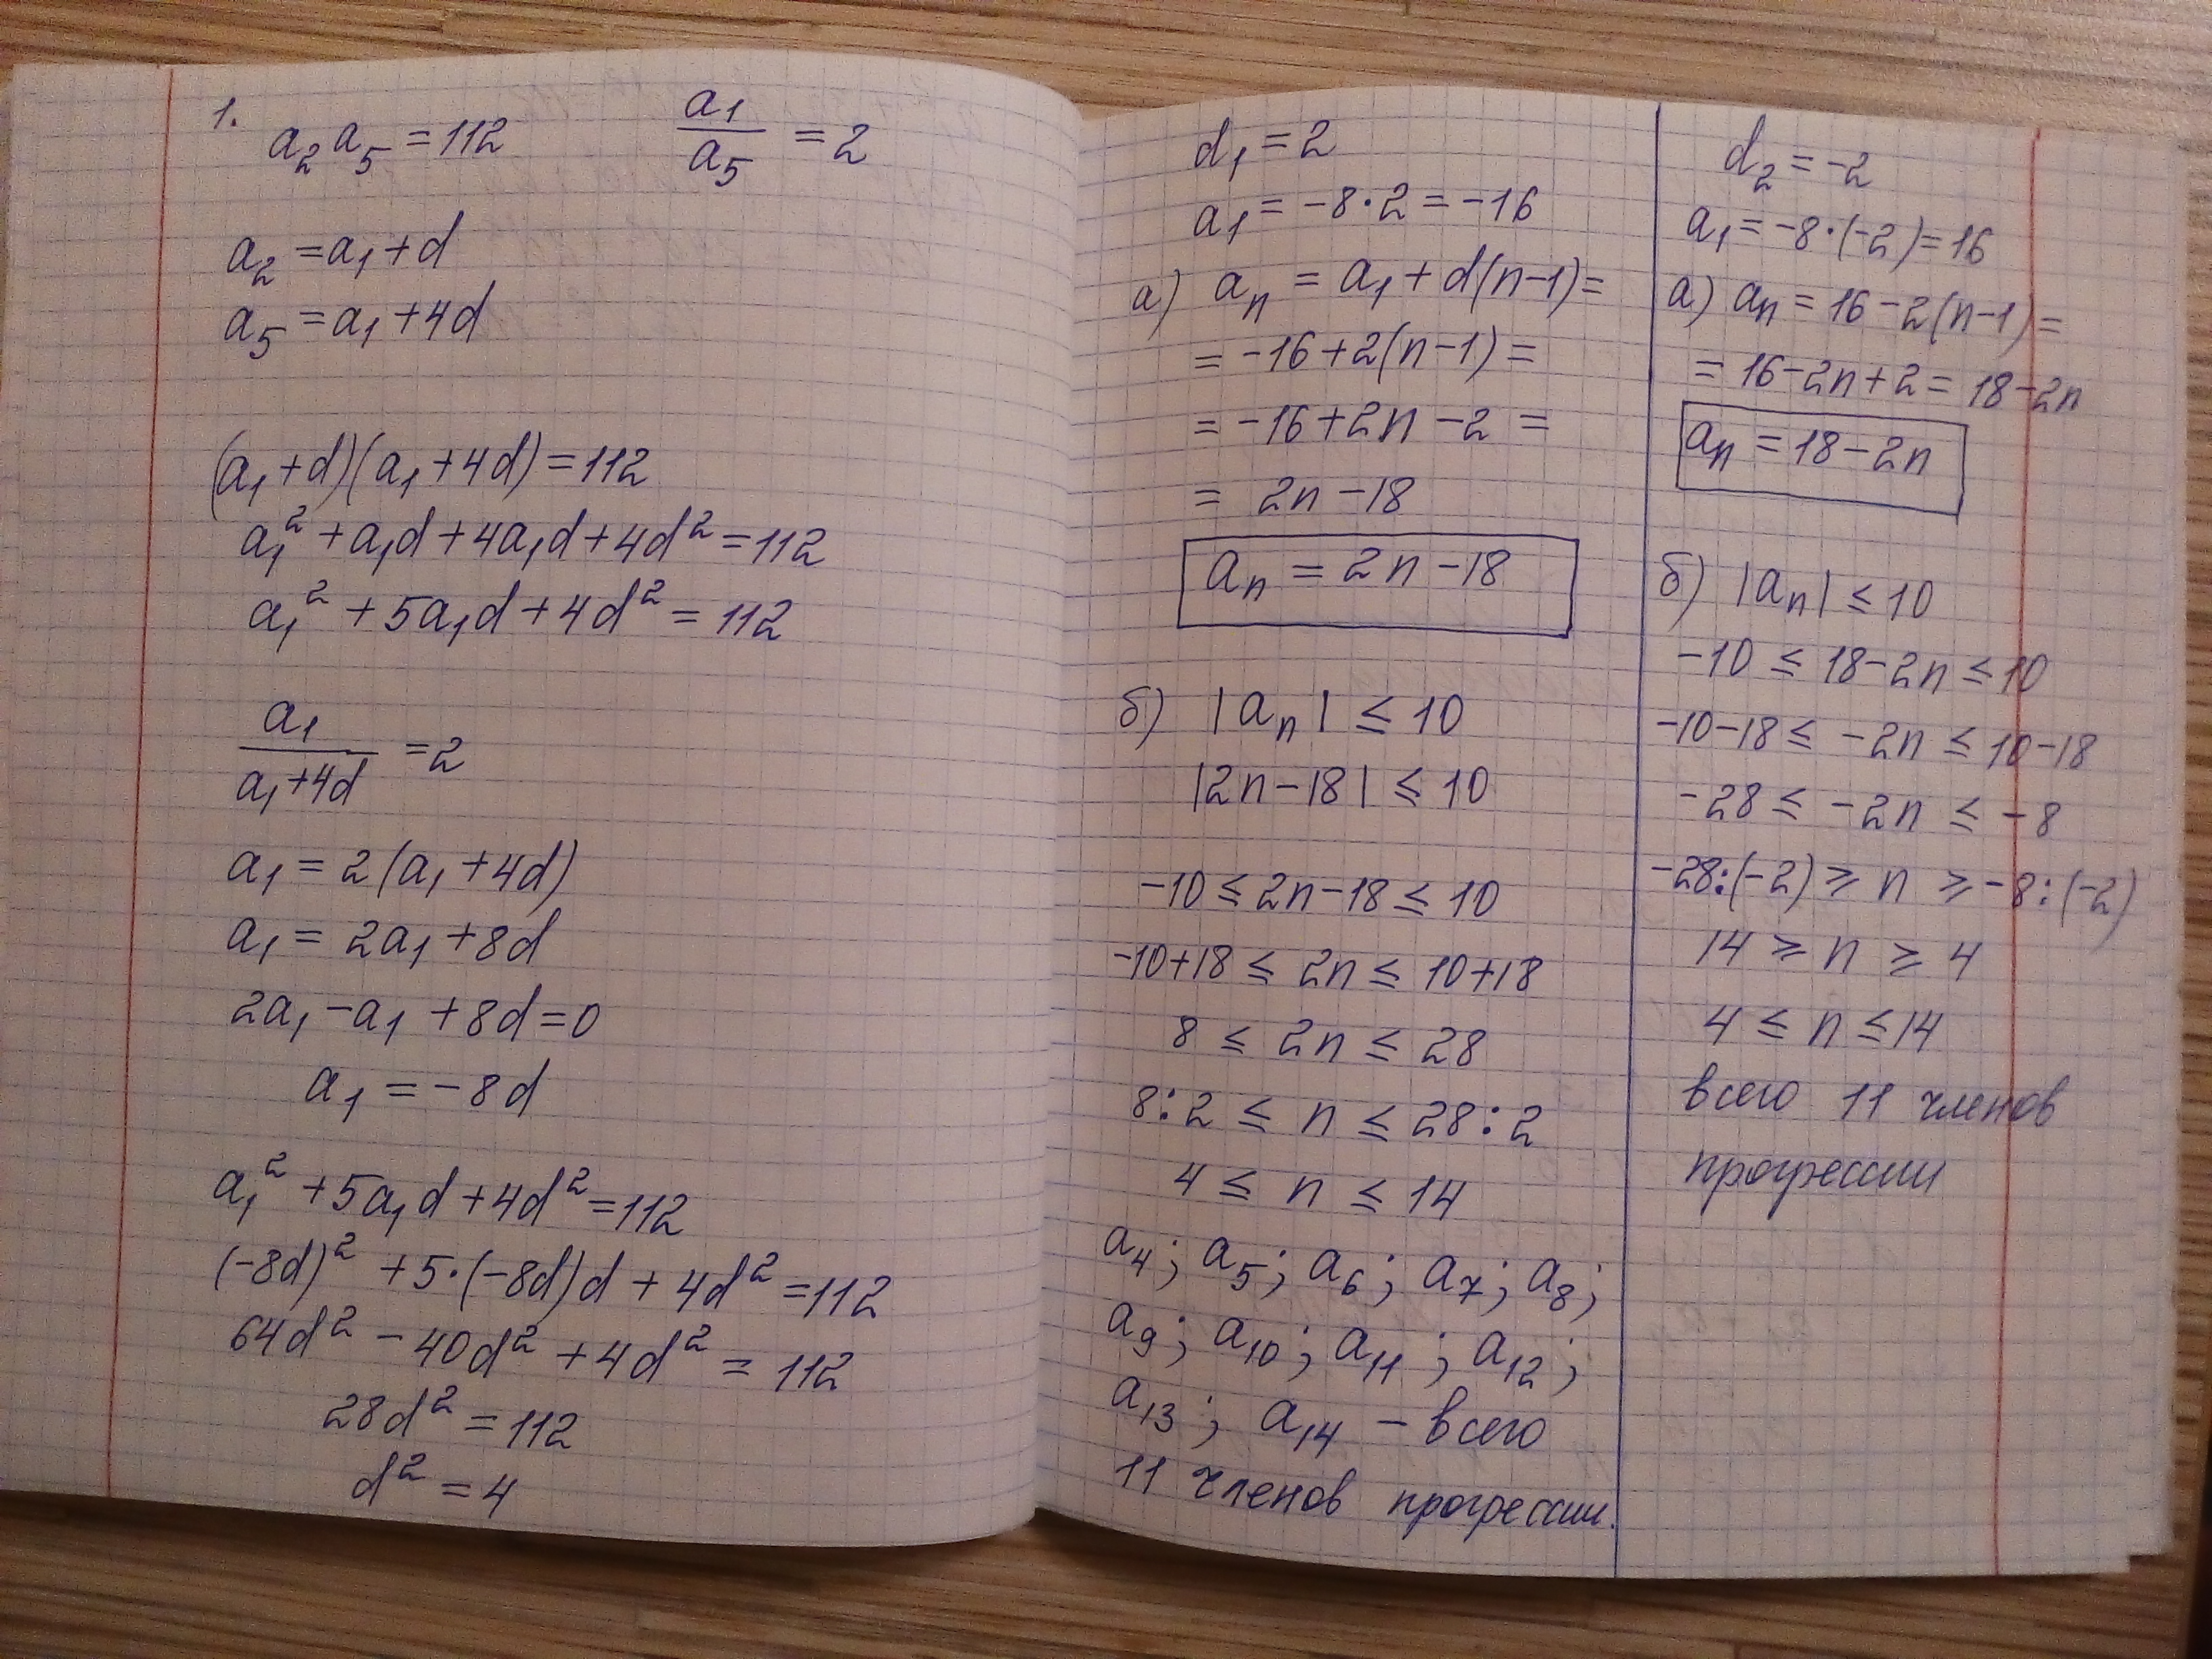 1. a₂a₅ = 112    a₁/a₅ = 2
a₂ = a₁ + d
a₅ = a₁ + 4d
(a₁ + d)(a₁ + 4d) = 112
a₁² + a₁d + 4a₁d + 4d² = 112
a₁² + 5a₁d + 4d² = 112
a₁/(a₁ + 4d) = 2
a₁ = 2(a₁ + 4d)
a₁ = 2a₁ + 8d
2a₁ - a₁ + 8d = 0
a₁ = -8d
a₁² + 5a₁d + 4d² = 112
(-8d)² + 5·(-8d)d + 4d² = 112
64d² - 40d² + 4d² = 112
28d² = 112
d² = 4
d₁ = 2
a₁ = -8·2 = -16
а) aₙ = a₁ + d(n-1) =
= -16 + 2(n-1) =
= -16 + 2n - 2 =
= 2n - 18
aₙ = 2n - 18
б) |aₙ| ≤ 10
|2n - 18| ≤ 10
-10 ≤ 2n - 18 ≤ 10
-10+18 ≤ 2n ≤ 10+18
8 ≤ 2n ≤ 28
8:2 ≤ n ≤ 28:2
4 ≤ n ≤ 14
a₄; a₅; a₆; a₇; a₈;
a₉; a₁₀; a₁₁; a₁₂;
a₁₃; a₁₄ - всего
11 членов прогрессии.
d₂ = -2
a₁ = -8·(-2) = 16
а) aₙ = 16 - 2(n-1) =
= 16 - 2n + 2 = 18 - 2n
aₙ = 18 - 2n
б) |aₙ| ≤ 10
-10 ≤ 18 - 2n ≤ 10
-10-18 ≤ -2n ≤ 10-18
-28 ≤ -2n ≤ -8
-28:(-2) ≥ n ≥ -8:(-2)
14 ≥ n ≥ 4
4 ≤ n ≤ 14
всего 11 членов
прогрессии